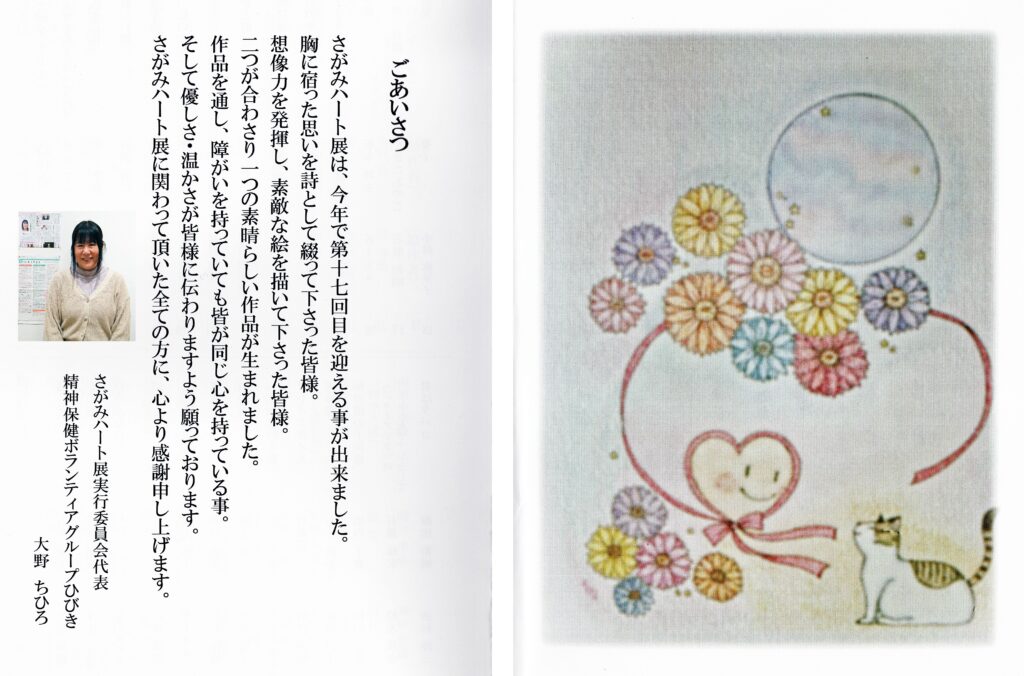 ごあいさつ
さがみハート展は、今年で第十七回目を迎える事が出来ました。
胸に宿った思いを詩として綴って下さった皆様。
想像力を発揮し、素敵な絵を描いて下さった皆様。
二つが合わさり一つの素晴らしい作品が生まれました。
作品を通し、障がいを持っていても皆が同じ心を持っている事。
そして優しさ・温かさが皆様に伝わりますよう願っております。
さがみハート展に関わって頂いた全ての方に、心より感謝申し上げます。
さがみハート展実行委員会代表
精神保健ボランティアグループひびき
大野 ちひろ